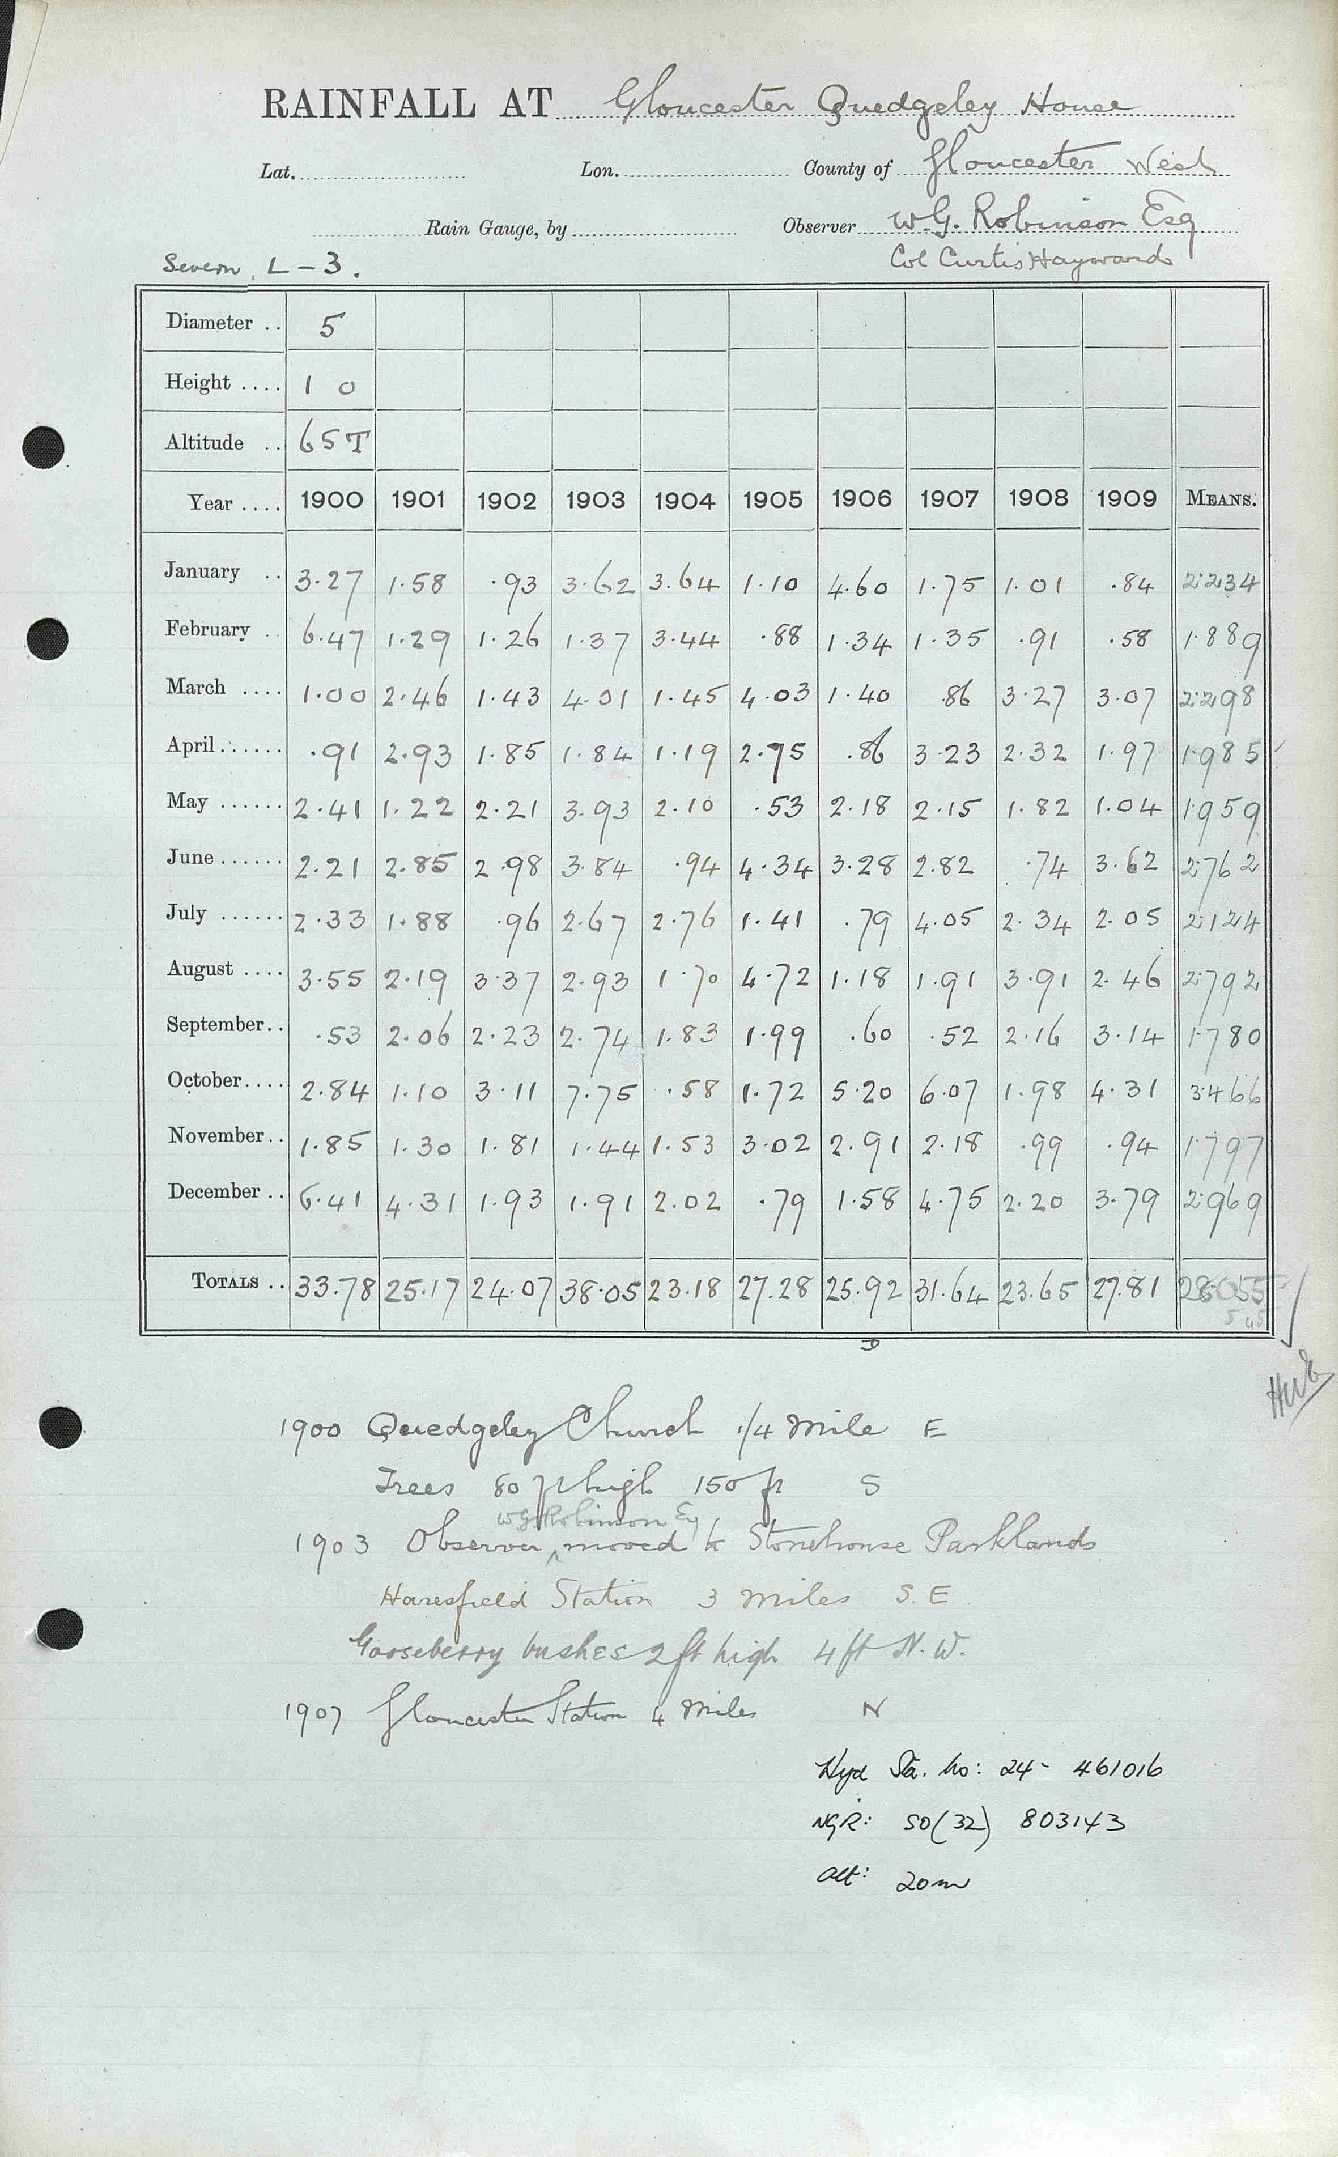 RAINFALL AT Gloucester Quedgeley House
Lat. Lon. County of Gloucester West
Rain Gauge, by Observer W.G. Robinson Esq
Severn, L-3. Col Curtis Hayward
Diameter .. 5
Height .... 1 0
Altitude .. 65T
Year .... 1900 1901 1902 1903 1904 1905 1906 1907 1908 1909 MEANS.
January .. 3.27 1.58 .93 3.62 3.64 1.10 4.60 1.75 1.01 .84 2.234
February .. 6.47 1.29 1.26 1.37 3.44 .88 1.34 1.35 .91 .58 1.889
March .... 1.00 2.46 1.43 4.01 1.45 4.03 1.40 .86 3.27 3.07 2.298
April ...... .91 2.93 1.85 1.84 1.19 2.75 .86 3.23 2.32 1.97 1.985
May ...... 2.41 1.22 2.21 3.93 2.10 .53 2.18 2.15 1.82 1.04 1.959
June ...... 2.21 2.85 2.98 3.84 .94 4.34 3.28 2.82 .74 3.62 2.762
July ...... 2.33 1.88 .96 2.67 2.76 1.41 .79 4.05 2.34 2.05 2.124
August .... 3.55 2.19 3.37 2.93 1.70 4.72 1.18 1.91 3.91 2.46 2.792
September .. .53 2.06 2.23 2.74 1.83 1.99 .60 .52 2.16 3.14 1.780
October .... 2.84 1.10 3.11 7.75 .58 1.72 5.20 6.07 1.98 4.31 3.466
November .. 1.85 1.30 1.81 1.44 1.53 3.02 2.91 2.18 .99 .94 1.797
December .. 6.41 4.31 1.93 1.91 2.02 .79 1.58 4.75 2.20 3.79 2.969
TOTALS .. 33.78 25.17 24.07 38.05 23.18 27.28 25.92 31.64 23.65 27.81 28.055
1900 Quedgeley Church 1/4 Mile E
Trees 80 ft high 150 ft S
W.G. Robinson Esq
1903 Observer moved to Stonehouse Parklands
Haresfield Station 3 miles S.E
Gooseberry bushes 2 ft high 4 ft N.W.
1907 Gloucester Station 4 Miles N
Hyd Sta. No: 24- 461016
NGR: SO(32) 803143
Alt: 20m